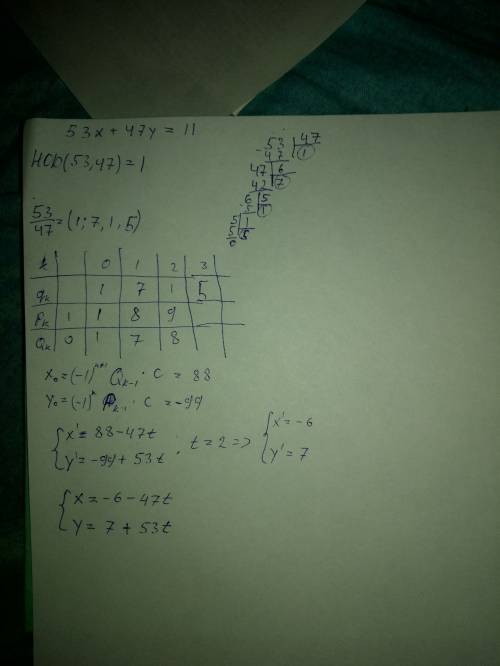 53x + 47y = 11
НОД(53,47) = 1
53 | 47
47 | 1
47 | 6
42 | 7
6 | 5
5 | 1
5 | 1
5 | 5
0
53/47 = (1; 7, 1, 5)
k 0 1 2 3
qk 1 7 1 5
Pk 1 1 8 9
Qk 0 1 7 8
x₀ = (-1)ⁿ⁺¹ Qk-1 · c = 88
y₀ = (-1)ⁿ Pk-1 · c = -99
{ x' = 88 - 47t
y' = -99 + 53t ; t = 2 =>
{ x' = -6
y' = 7
{ x = -6 - 47t
y = 7 + 53t